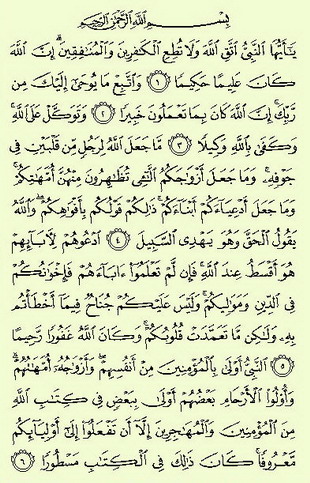 بِسْمِ اللَّهِ الرَّحْمَٰنِ الرَّحِيمِ
يَٰٓأَيُّهَا النَّبِيُّ اتَّقِ اللَّهَ وَلَا تُطِعِ الْكَٰفِرِينَ وَالْمُنَٰفِقِينَ ۗ إِنَّ اللَّهَ
كَانَ عَلِيمًا حَكِيمًا ۝١ وَاتَّبِعْ مَا يُوحَىٰٓ إِلَيْكَ مِن
رَّبِّكَ ۚ إِنَّ اللَّهَ كَانَ بِمَا تَعْمَلُونَ خَبِيرًا ۝٢ وَتَوَكَّلْ عَلَى اللَّهِ ۚ
وَكَفَىٰ بِاللَّهِ وَكِيلًا ۝٣ مَّا جَعَلَ اللَّهُ لِرَجُلٍ مِّن قَلْبَيْنِ فِي
جَوْفِهِۦ ۚ وَمَا جَعَلَ أَزْوَٰجَكُمُ الَّٰٓـِٔي تُظَٰهِرُونَ مِنْهُنَّ أُمَّهَٰتِكُمْ ۚ
وَمَا جَعَلَ أَدْعِيَآءَكُمْ أَبْنَآءَكُمْ ۚ ذَٰلِكُمْ قَوْلُكُم بِأَفْوَٰهِكُمْ ۖ وَاللَّهُ
يَقُولُ الْحَقَّ وَهُوَ يَهْدِي السَّبِيلَ ۝٤ ادْعُوهُمْ لِءَابَآئِهِمْ
هُوَ أَقْسَطُ عِندَ اللَّهِ ۚ فَإِن لَّمْ تَعْلَمُوٓا ءَابَآءَهُمْ فَإِخْوَٰنُكُمْ
فِي الدِّينِ وَمَوَٰلِيكُمْ ۚ وَلَيْسَ عَلَيْكُمْ جُنَاحٌ فِيمَآ أَخْطَأْتُم
بِهِۦ وَلَٰكِن مَّا تَعَمَّدَتْ قُلُوبُكُمْ ۚ وَكَانَ اللَّهُ غَفُورًا رَّحِيمًا
۝٥ النَّبِيُّ أَوْلَىٰ بِالْمُؤْمِنِينَ مِنْ أَنفُسِهِمْ ۖ وَأَزْوَٰجُهُۥٓ أُمَّهَٰتُهُمْ ۗ
وَأُولُوا الْأَرْحَامِ بَعْضُهُمْ أَوْلَىٰ بِبَعْضٍ فِي كِتَٰبِ اللَّهِ
مِنَ الْمُؤْمِنِينَ وَالْمُهَٰجِرِينَ إِلَّآ أَن تَفْعَلُوٓا إِلَىٰٓ أَوْلِيَآئِكُم
مَّعْرُوفًا ۚ كَانَ ذَٰلِكَ فِي الْكِتَٰبِ مَسْطُورًا ۝٦